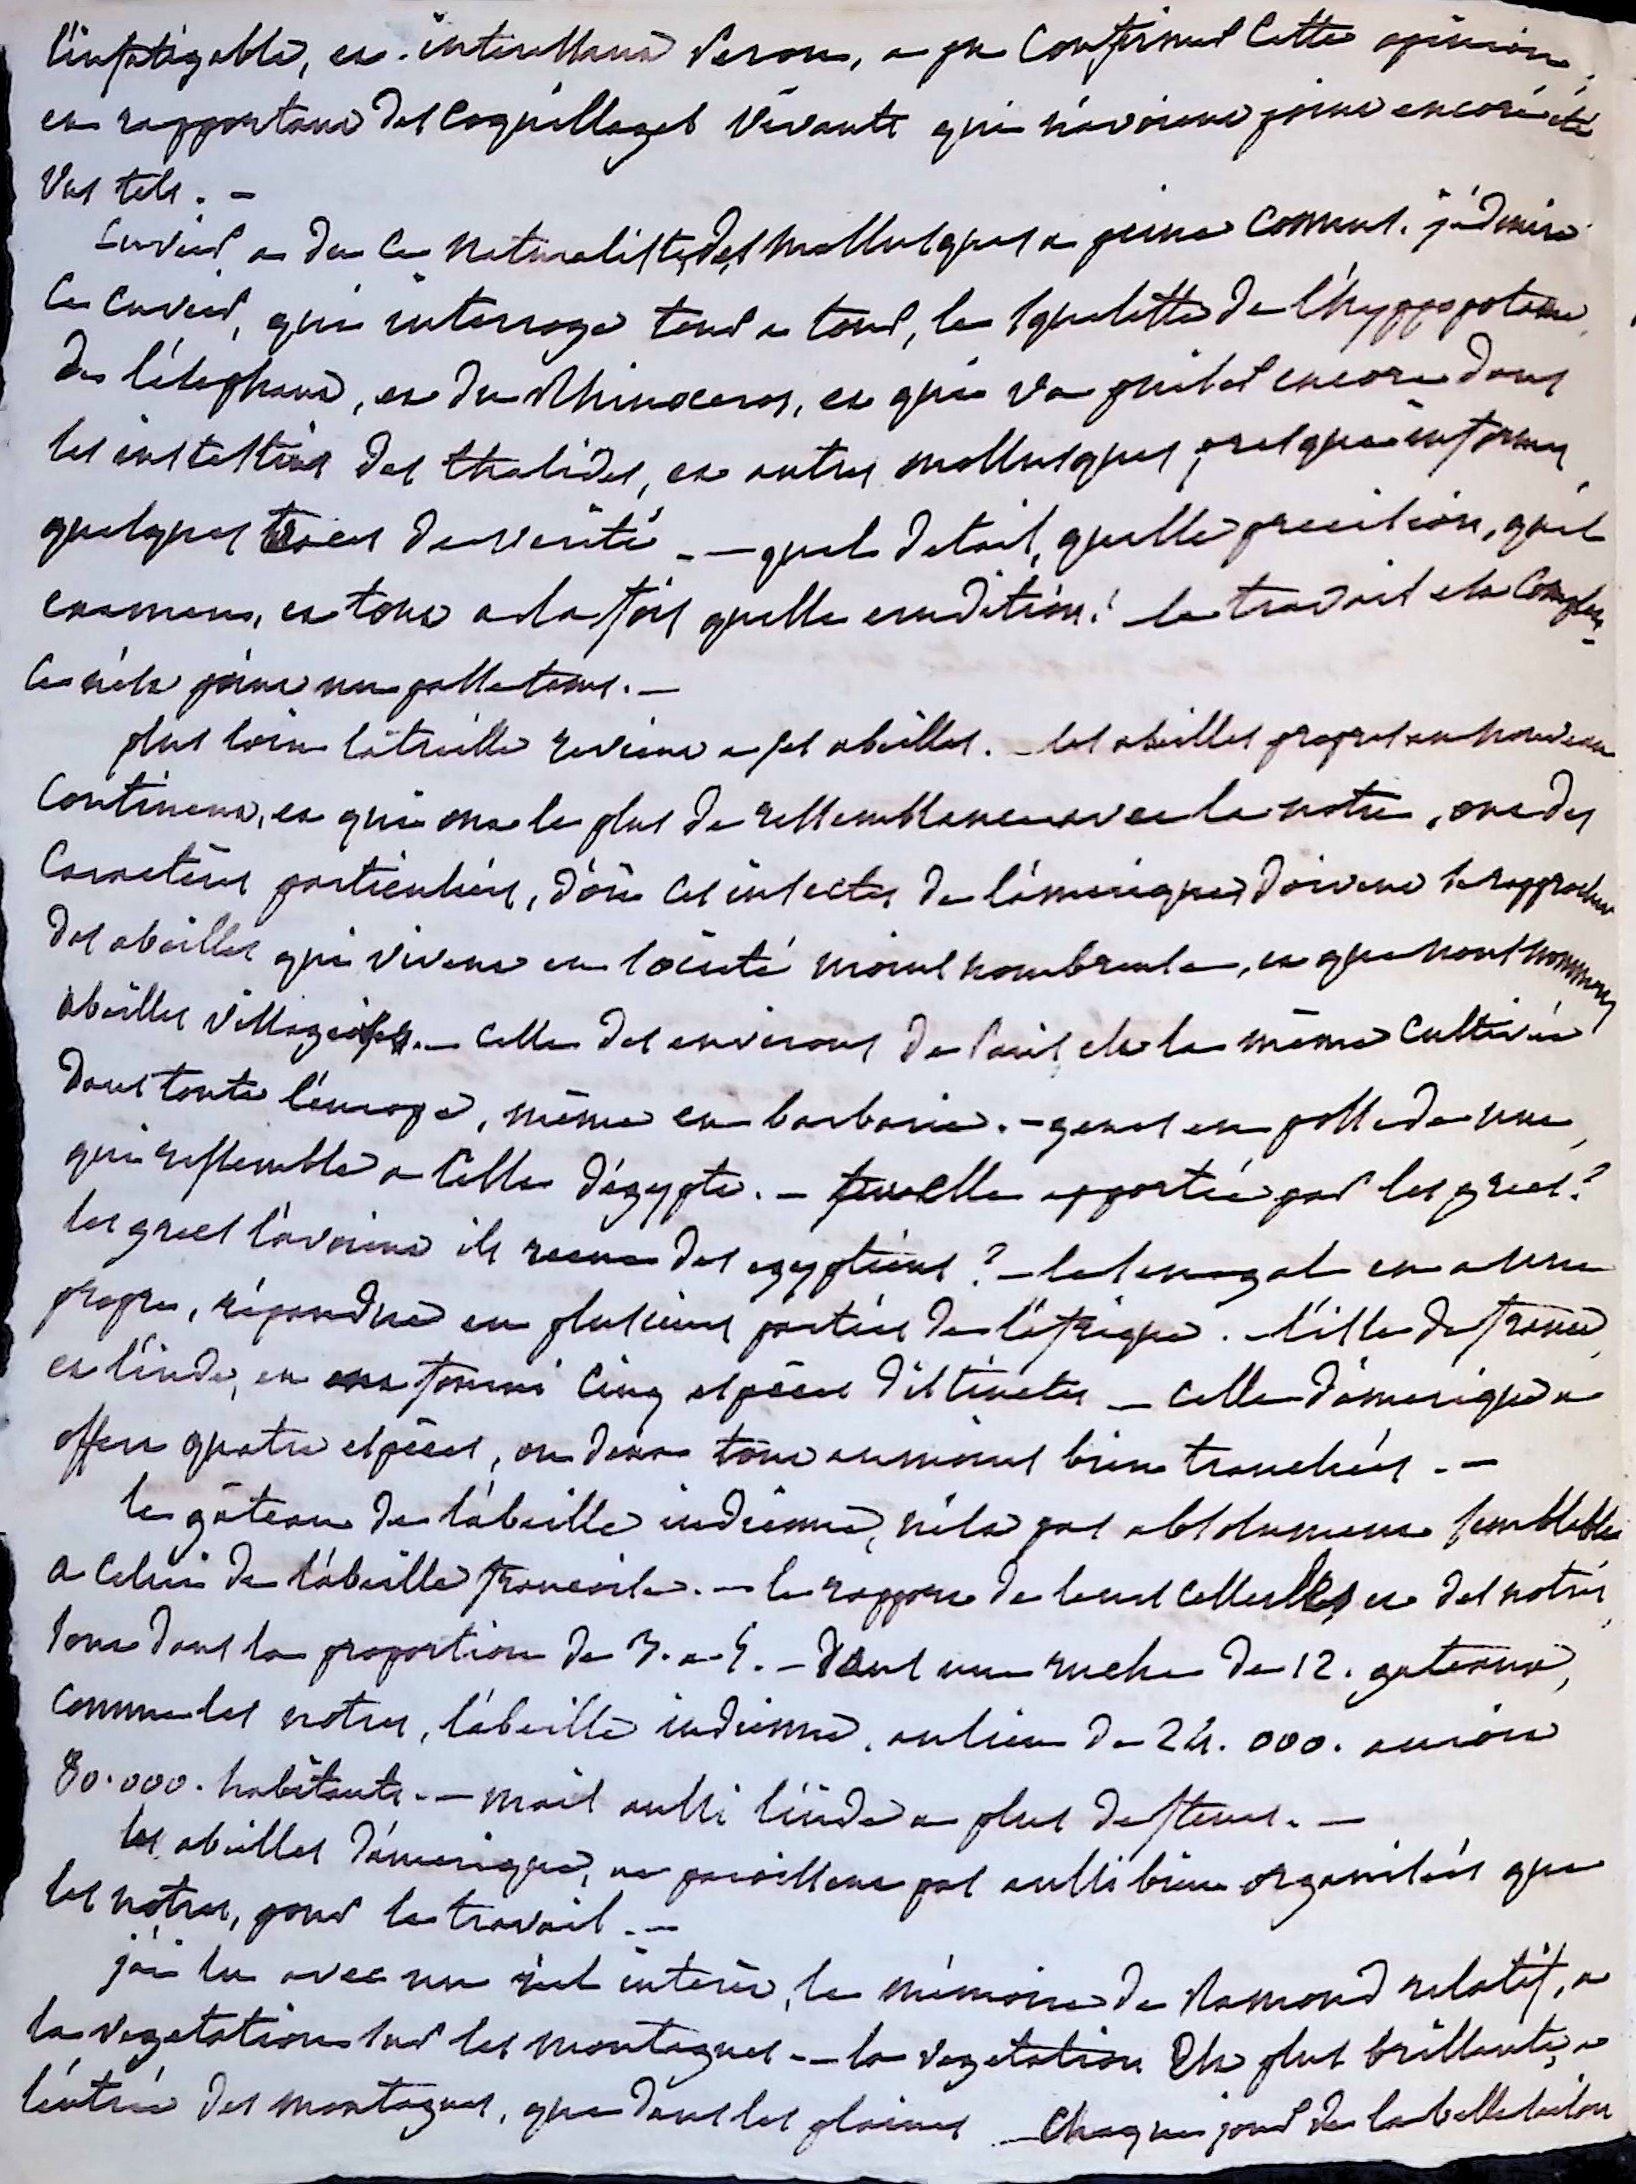 l'infatigable, et intéressant Peron, a pu confirmer cette opinion,
en rapportant des coquillages vivants qui n'avoient point encore été
vus tels. —
Cuvier a du a ce naturaliste, des mollusques a peine connus. j'admire
ce Cuvier, qui interroge tour a tour, le squelette de l'hyppopotame,
de l'éléphant, et du Rhinoceros, et qui va puiser encore dans
les intestins des thalides, et autres mollusques presque informes,
quelques traces de verité. — quel detail, quelle precision, quel
examen, et tout a la fois quelle erudition! le travail est complet,
ce n'est point un passetems. —
plus loin latreille revient a ses abeilles. — les abeilles propres au nouveau
continent, et qui ont le plus de ressemblance avec la notre, ont des
caractères particuliers, d'où ces insectes de l'amérique doivent se rapprocher
des abeilles qui vivent en société moins nombreuse, et que nous nommons
abeilles villageoises. — celle des environs de Paris, est la même cultivée
dans toute l'europe, même en barbarie. — genes en possede une,
qui ressemble a celle d'égypte. — fut elle apportée par les grecs?
les grecs l'avoient ils recue des egyptiens? — le senegal en a une
propre, répandue en plusieurs parties de l'afrique. — l'isle de france,
et l'inde, en ont fourni cinq espèces distinctes — celle d'amerique a
offert quatre espèces, ou deux tout au moins bien tranchées. —
le gâteau de l'abeille indienne, n'est pas absolument semblable
a celui de l'abeille francoise. — le rapport de leurs cellules, et des notres,
sont dans la proportion de 3. a 5. — dans une ruche de 12. gateaux,
comme les notres, l'abeille indienne, au lieu de 24.000. auroit
80.000. habitants. — mais aussi l'inde a plus de fleurs. —
les abeilles d'amerique, ne paroissent pas aussi bien organisées que
les notres, pour le travail. —
j'ai lu avec un réel intérêt, le mémoire de Ramond relatif, a
la vegetation sur les montagnes. — la vegetation est plus brillante, a
l'entrée des montagnes, que dans les plaines — chaque jour de la belle saison